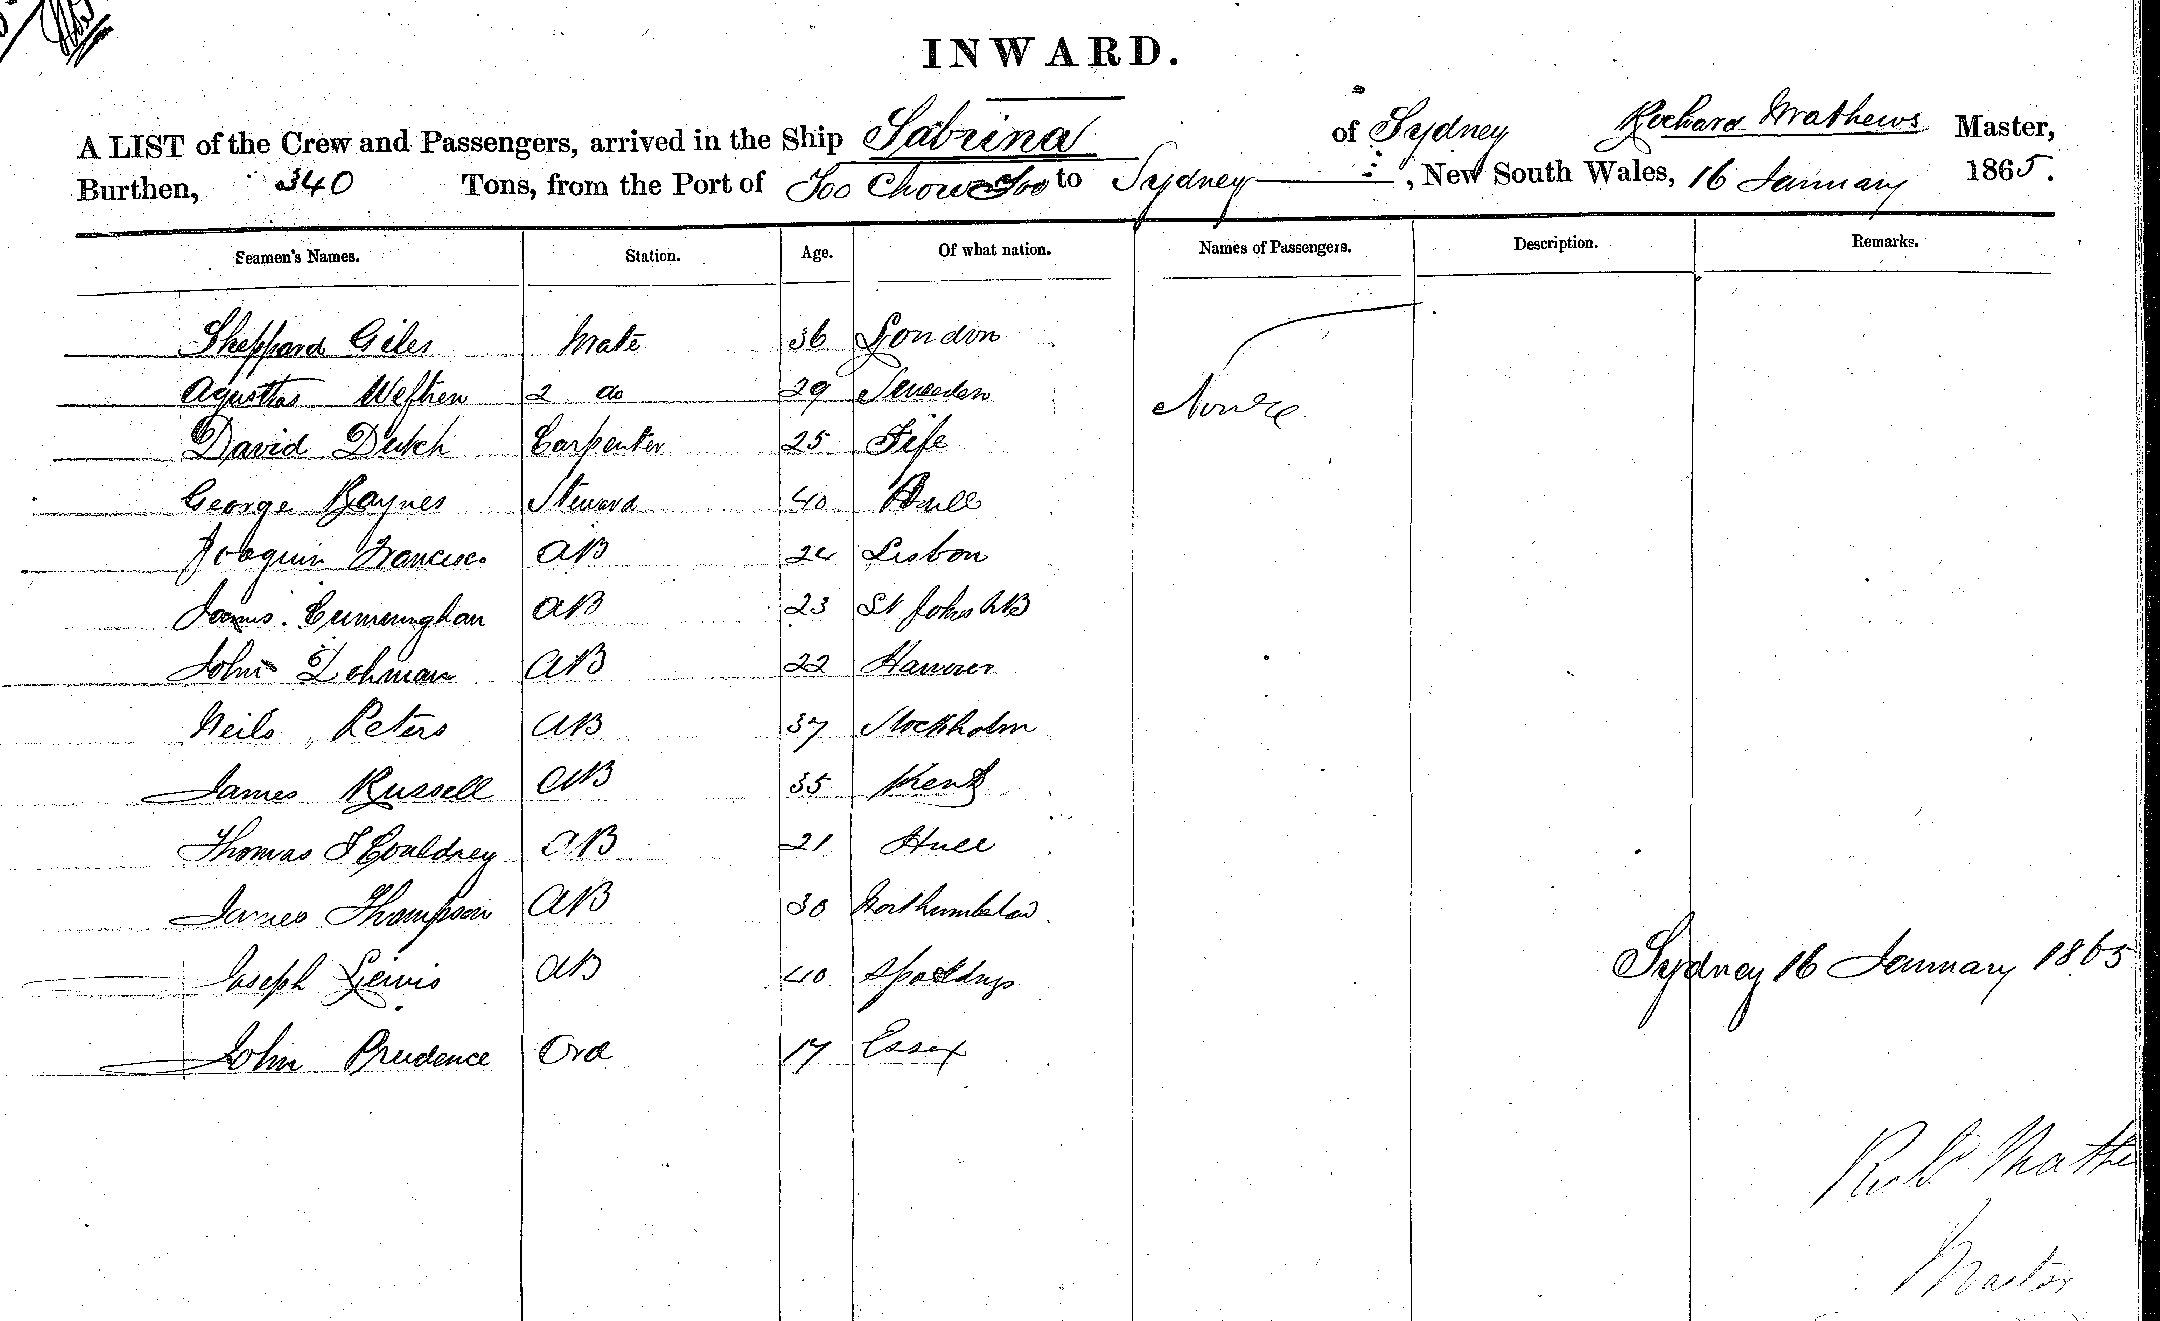 INWARD.
A LIST of the Crew and Passengers, arrived in the Ship Sabrina of Sydney Richard Mathews Master,
Burthen, 340 Tons, from the Port of Foo Chow Foo to Sydney , New South Wales, 16 January 1865.
Seamen's Names. Station. Age. Of what nation. Names of Passengers. Description. Remarks.
Sheppard Giles Mate 36 London
Agusttas 2 do 29 Sweeden None
David Dutch Carpenter 25 Fife
George Raynes Steward 40 Hull
Joaquin Francisco AB 24 Lisbon
James Cunningham AB 23 St Johns NB
John Lohman AB 22 Hanover
Neils Peters AB 37 Stockholm
James Russell AB 35 Kent
Thomas F Couldrey AB 21 Hull
James Thompson AB 30 Northumbeland
Joseph Lewis AB 40
Sydney 16 January 1865
John Prudence Ord 17 Essex
Mathe
Master